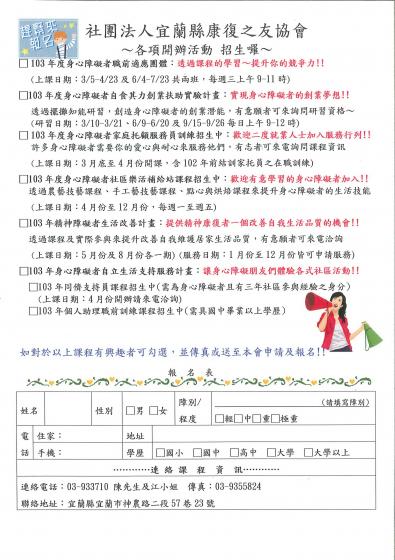 趕緊來
報名
社團法人宜蘭縣康復之友協會
～各項開辦活動 招生囉～
□103 年度身心障礙者職前適應團體：透過課程的學習~提升你的競爭力!!
(上課日期：3/5-4/23 及 6/4-7/23 共兩班，每週三上午 9-11 時)
□103 年度身心障礙者自食其力創業扶助實驗計畫：實現身心障礙者的創業夢想!!
透過擺攤知能研習，創造身心障礙者的創業潛能，有意願者可來詢問研習資格~
(研習日期：3/10-3/21、6/9-6/20 及 9/15-9/26 每日上午 9-12 時)
□103 年度身心障礙者家庭托顧服務員訓練招生中：歡迎二度就業人士加入服務行列!!
許多身心障礙者需要你的愛心與耐心來服務他們，有志者可來電詢問課程資訊
(上課日期：3 月底至 4 月份開課，含 102 年結訓家托員之在職訓練)
□103 年度身心障礙者社區樂活補給站課程招生中：歡迎有意學習的身心障礙者加入!!
透過農藝技藝課程、手工藝技藝課程、點心與烘焙課程來提升身心障礙者的生活技能
(上課日期：4 月份至 12 月份，每週一至週五)
□103 年精神障礙者生活改善計畫：提供精神康復者一個改善自我生活品質的機會!!
透過課程及實際參與來提升改善自我維護居家生活品質，有意願者可來電洽詢
(上課日期：5 月份及 8 月份各一期) (服務日期：1 月份至 12 月份皆可申請服務)
□103 年身心障礙者自立生活支持服務計畫：讓身心障礙朋友們體驗各式社區活動!!
□103 年同儕支持員課程招生中(需為身心障礙者且有三年社區參與經驗之身分)
(上課日期：4 月份開辦請來電洽詢)
□103 年個人助理職前訓練課程招生中(需具國中畢業以上學歷)
如對於以上課程有興趣者可勾選，並傳真或送至本會申請及報名!!
報 名 表
姓名
性別
□男 □女
障別/
程度
(請填寫障別)
□輕□中□重□極重
電
話
住家：
地址
手機：
學歷
□國小 □國中 □高中 □大學 □大學以上
…………連 絡 課 程 資 訊…………
連絡電話：03-933710 陳先生及江小姐 傳真：03-9355824
聯絡地址：宜蘭縣宜蘭市神農路二段 57 巷 23 號